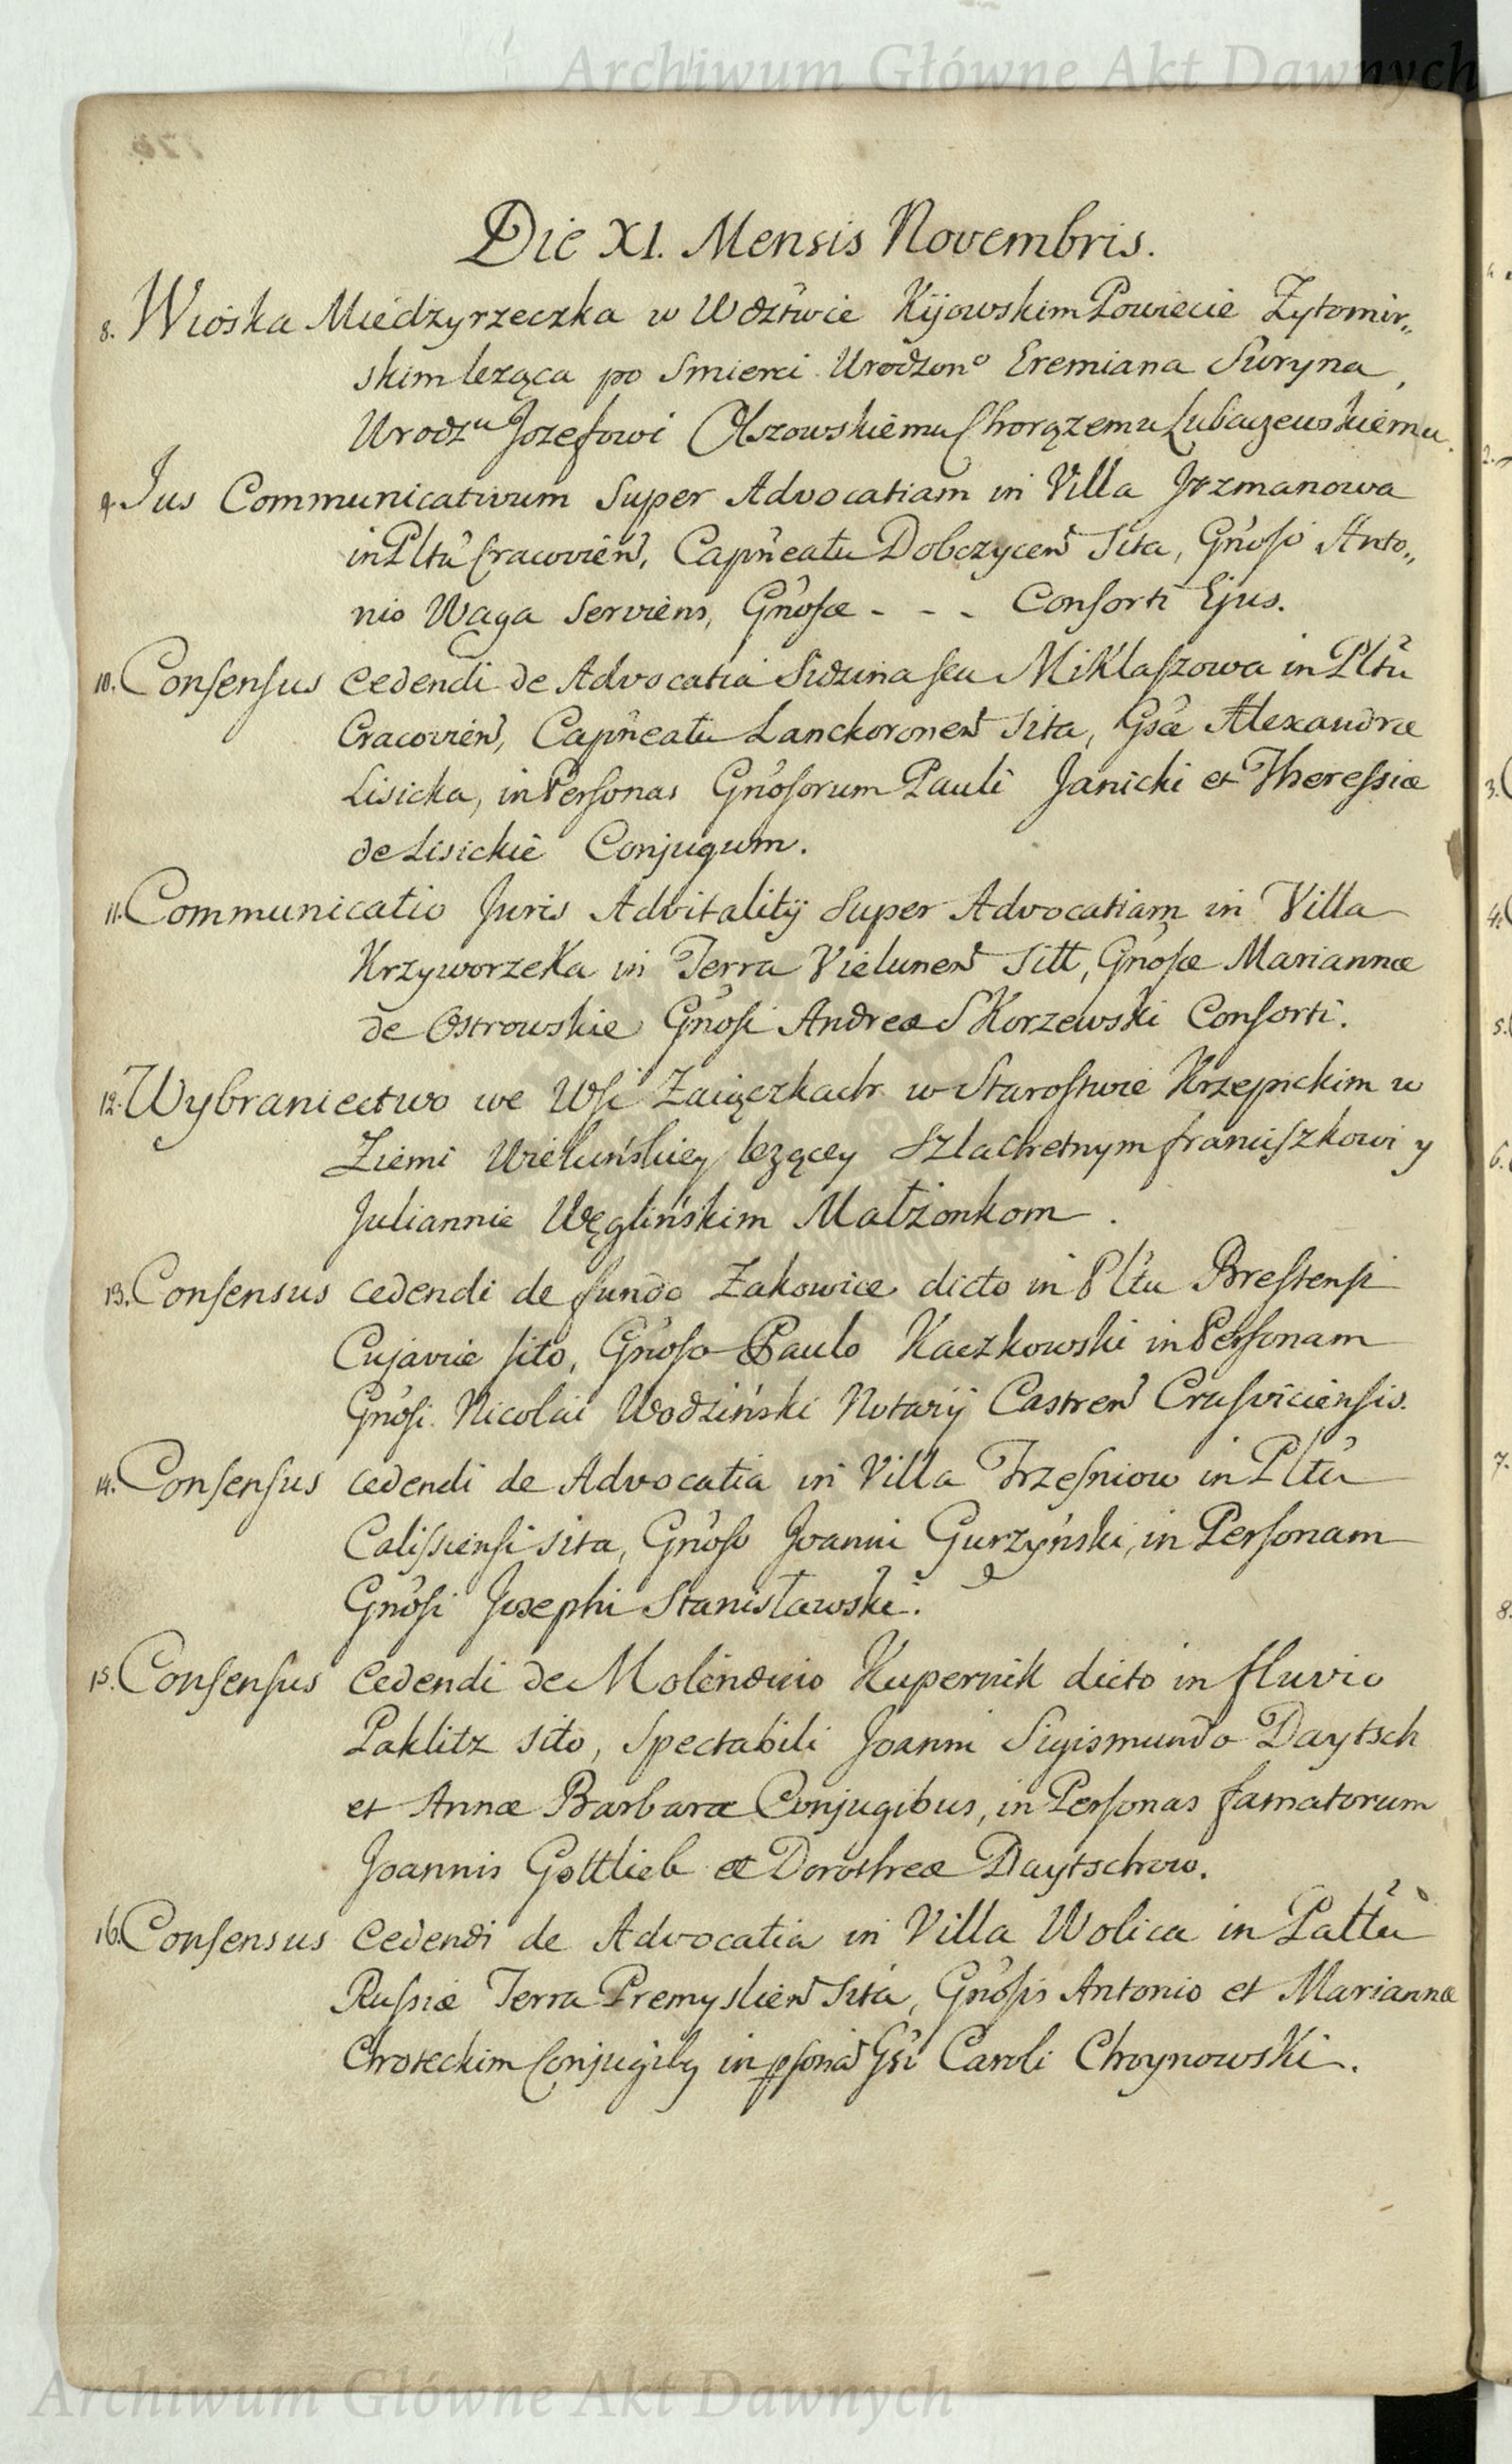 Archiwum Główne Akt Dawnych
Die XI. Mensis Novembris.
8. Wioska Miedzyrzeczka w Wdztwie Kijowskim Powiecie Zytomir„
skim leząca po Smierci Urodzonº Eremiana Suryna,
Urodzᵘ Jozefowi Olszowskiemu Chorązemu Lubaczewskiemu.
9. Jus Communicativum Super Advocatiam in Villa Jrzmanowa
in Pltũ Cracovien, Capñeatu Dobczycen Sita, Gñoso Anto„
nio Waga Serviens, Gñosæ - - - Consorti Ejus.
10. Consensus Cedendi de Advocatia Sidzina seu Miklaszowa in Pltũ
Cracovien, Capñeatu Lanckoronen Sita, Gsæ Alexandræ
Lisicka, in Personas Gñosorum Pauli Janicki et Theressiæ
de Lisickie Conjugum.
11. Communicatio Juris Advitalitÿ Super Advocatiam in Villa
Krzyworzeka in Terra Vielunen Sitt, Gñosæ Mariannæ
de Ostrowskie Gñosi Andreæ Skorzewski Consorti.
12. Wybraniectwo we Wsi Zaiączkach w Starostwie Krzepickim w
Ziemi Wieluńskiey lezącey Szlachetnym franciszkowi y
Juliannie Węglińskim Małżonkom.
13. Consensus cedendi de fundo Zakowice dicto in Pltu Brestensi
Cujaviæ sito, Gñoso Paulo Kaczkowski in Personam
Gñosi Nicolai Wodziński Notarÿ Castren Crusviciensis.
14. Consensus cedendi de Advocatia in Villa Trzesniow in Pltũ
Calissiensi sita, Gñoso Joanni Gurzyński, in Personam
Gñosi Josephi Stanisławski.
15. Consensus Cedendi de Molendino Kupernik dicto in fluvio
Paklitz sito, Spectabili Joanni Sigismundo Daytsch
et Annæ Barbaræ Conjugibus, in Personas famatorum
Joannis Gottlieb et Dorotheæ Daytschow.
16. Consensus Cedendi de Advocatia in Villa Wolica in Pałłtũ
Russiæ Terra Premyslien Sita, Gñosis Antonio et Mariannæ
Chroteckim Conjugibq in psonã Gsi Caroli Choynowski.
Archiwum Główne Akt Dawnych